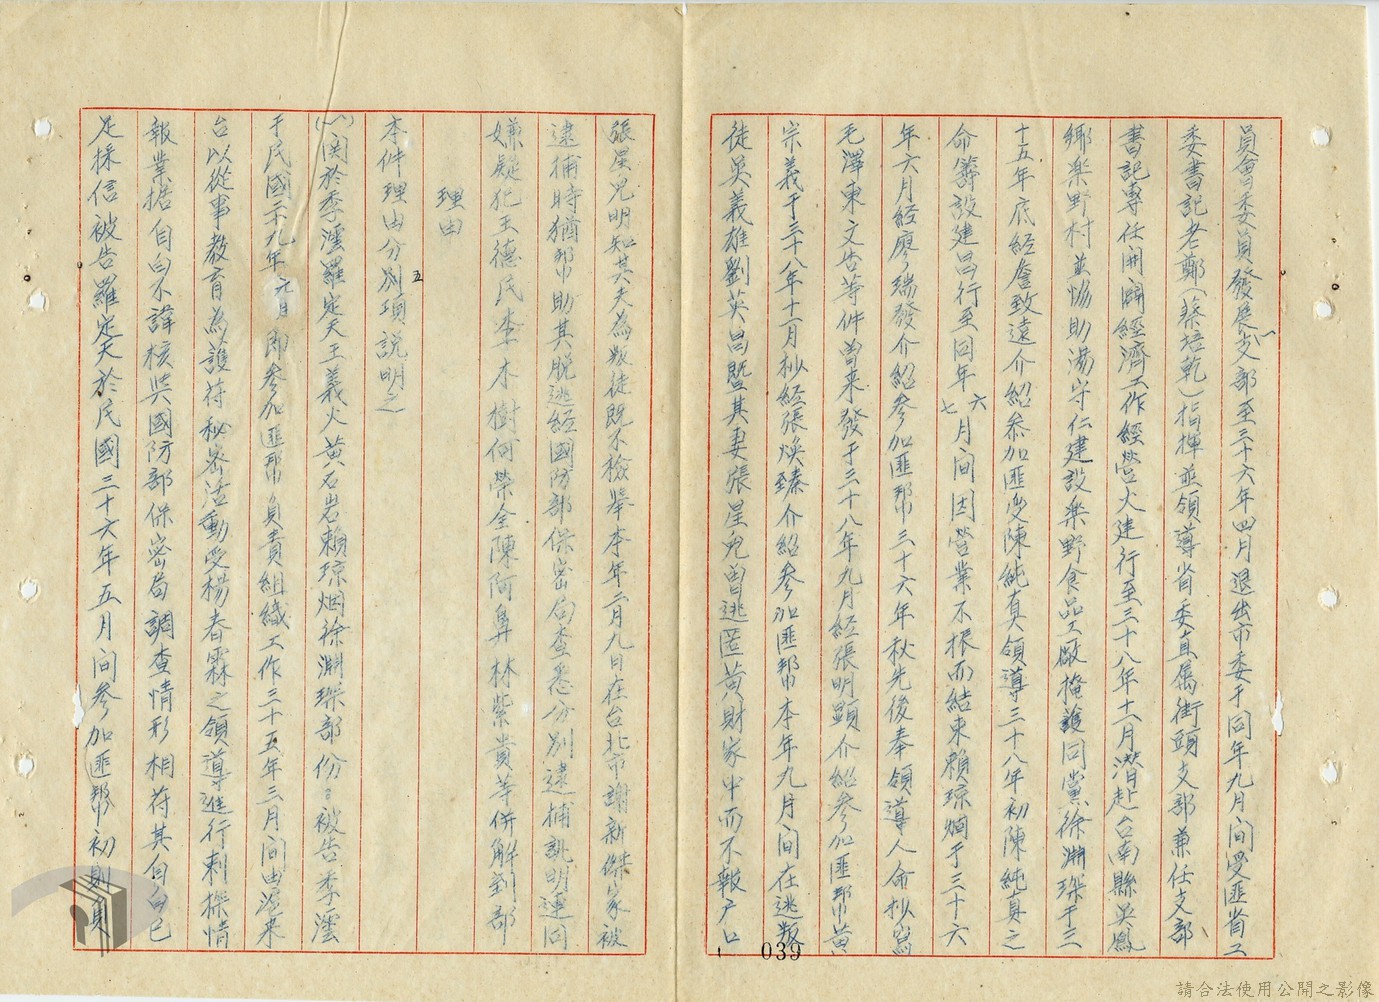 員會委員發展支部至三十六年四月退出市委于同年九月间受匪省工
委書記老鄭(蔡培乾)指揮並領導省委直属街頭支部兼任支部
書記專任開闢經濟工作經營火建行至三十八年十一月潛赴台南縣吳鳳
鄉楽野村並協助湯守仁建設楽野食品工廠掩護同黨徐渊琛于三
十五年底经詹致遠介紹参加匪受陳純真領導三十八年初陳純真之
命籌設建昌行至同年六七月间因营業不振而結束賴琼烟于三十六
年六月经廖瑞發介紹参加匪幇三十六年秋先後奉領導人命抄寫
毛澤東文告等件曽来發于三十八年九月经張明顕介紹参加匪幇黄
宗義于三十八年十一月杪经張煥臻介紹参加匪幇本年九月間在逃叛
徒吳義雄劉英昌暨其妻張星児曽逃匿黄財家中而不報户口
039
張星児明知其夫為叛徒既不檢舉本年二月九日在台北市謝新傑家被
逮捕時猶幇助其脱逃经國防部保密局查悉分别逮捕訊明連同
嫌疑犯王德民李木樹何榮全陳阿鼻林紫貴等併解到部
理由
本件理由分五項説明之
(一)関於季澐羅定天王義火黄石岩賴琼烟徐渊琛部份:被告季澐
于民國二十九年元月即参加匪幇負責組織工作三十五年三月间由滬来
台以從事教育為護符秘密活動受楊春霖之領導進行刺探情
報業据自白不諱核與國防部保密局調查情形相符其自白已
足採信被告羅定天於民國三十六年五月间参加匪幇初則負
請合法使用公開之影像